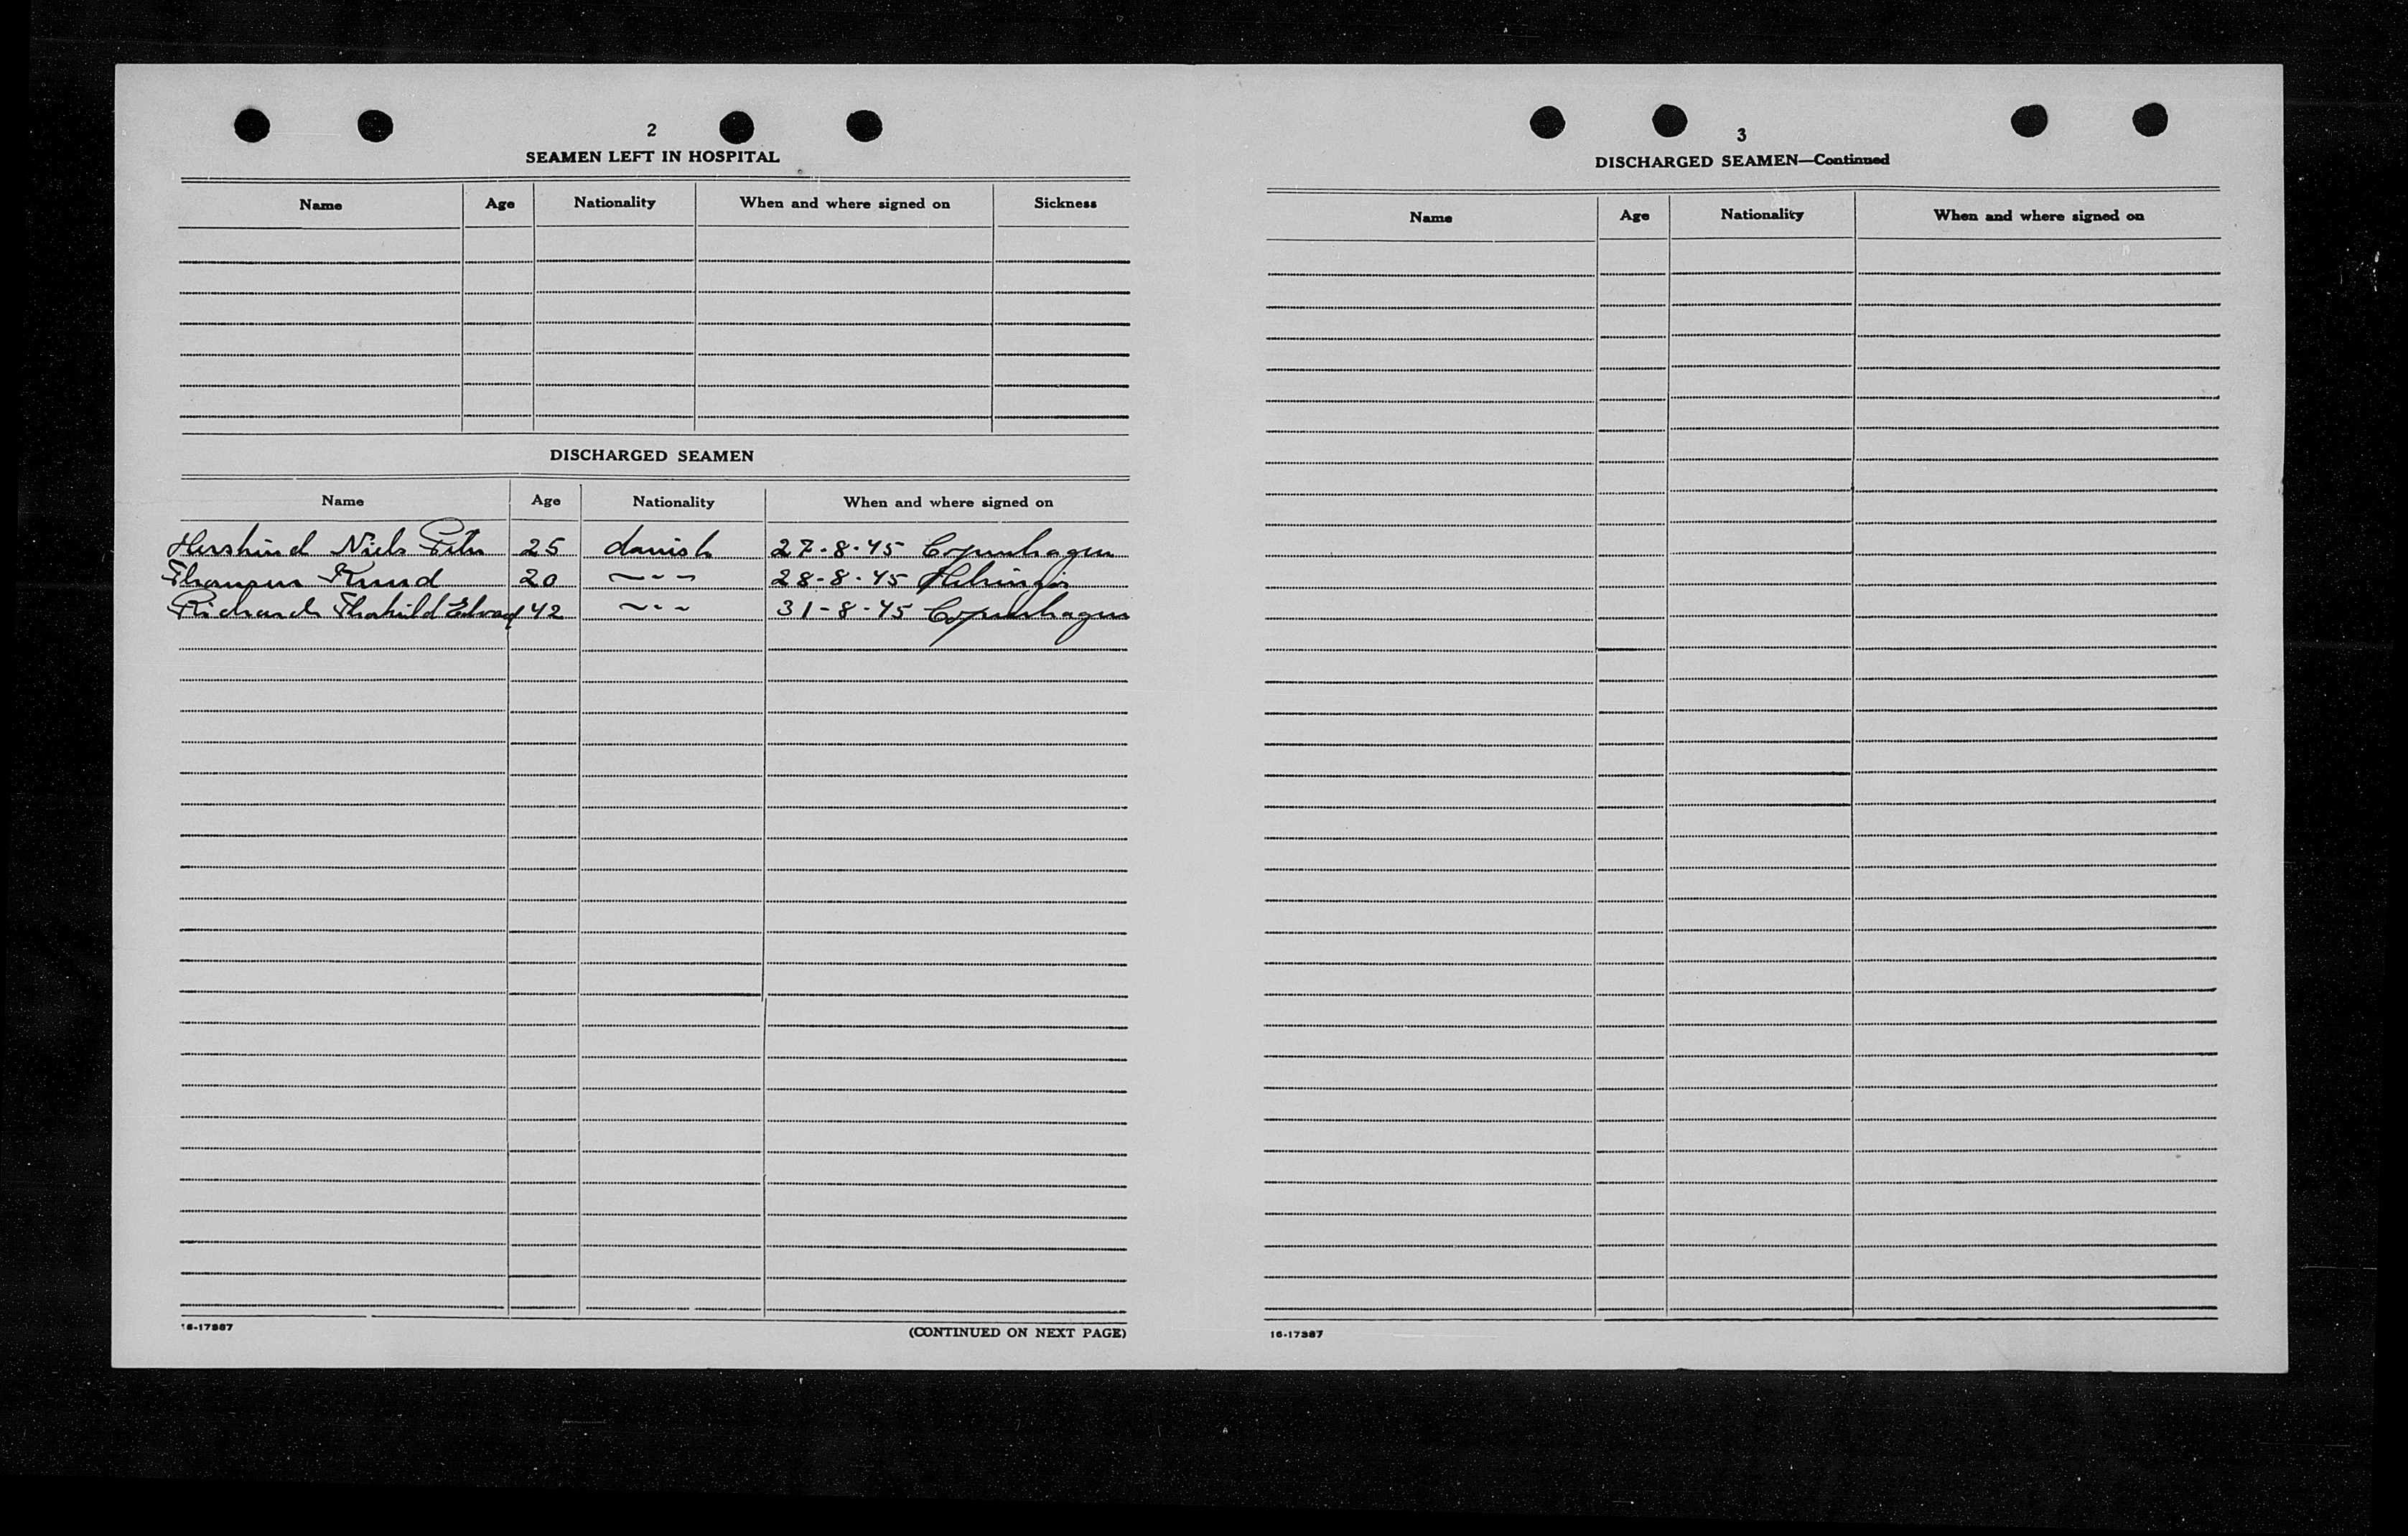 2
SEAMEN LEFT IN HOSPITAL
Name Age Nationality When and where signed on Sickness
DISCHARGED SEAMEN
Name Age Nationality When and where signed on
Niels Peter 25 danish 27-8-45 Copenhagen
Knud 20 ~ - - 28-8-45 Helsingør
42 ~ - - 31-8-45 Copenhagen
16-17387
(CONTINUED ON NEXT PAGE)
3
DISCHARGED SEAMEN—Continued
Name Age Nationality When and where signed on
16-17387